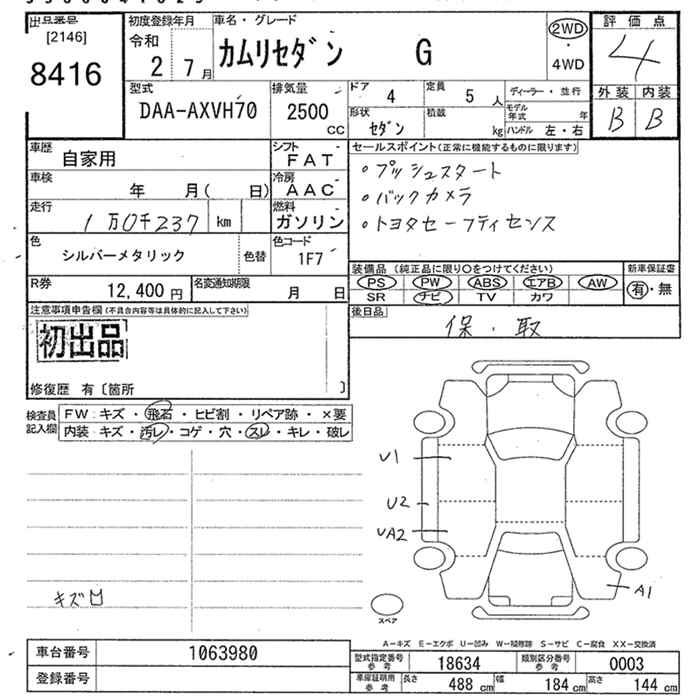 出品番号
[2146]
8416
初度登録年月
令和
2年7月
車名・グレード
カムリセダン G
2WD
・
4WD
評価点
4
外装 内装
B B
型式
DAA-AXVH70
排気量
2500
CC
ドア 4
定員 5 人
形状 セダン
積載 kg
ディーラー・並行
モデル年式 年
ハンドル 左・右
車歴 自家用
シフト FAT
車検 年 月( 日)
冷房 AAC
走行 1万0千237 km
燃料 ガソリン
色 シルバーメタリック 色替
色コード 1F7
R券 12,400円
名変通知期限 月 日
セールスポイント(正常に機能するものに限ります)
・プッシュスタート
・バックカメラ
・トヨタセーフティセンス
装備品 (純正品に限り○をつけてください)
PS PW ABS エアB AW
SR ナビ TV カワ
新車保証書
有・無
後日品
保・取
注意事項申告欄(不具合内容等は具体的に記入して下さい)
初出品
修復歴 有〔箇所 〕
検査員記入欄
FW:キズ・飛石・ヒビ割・リペア跡・×要
内装:キズ・汚レ・コゲ・穴・スレ・キレ・破レ
U1
U2
UA2
A1
キズ凹
スペア
A-キズ E-エクボ U-凹み W-補修跡 S-サビ C-腐食 XX-交換済
車台番号 1063980
登録番号
型式指定番号参考 18634
類別区分番号参考 0003
車庫証明用参考 長さ 488cm 幅 184cm 高さ 144cm